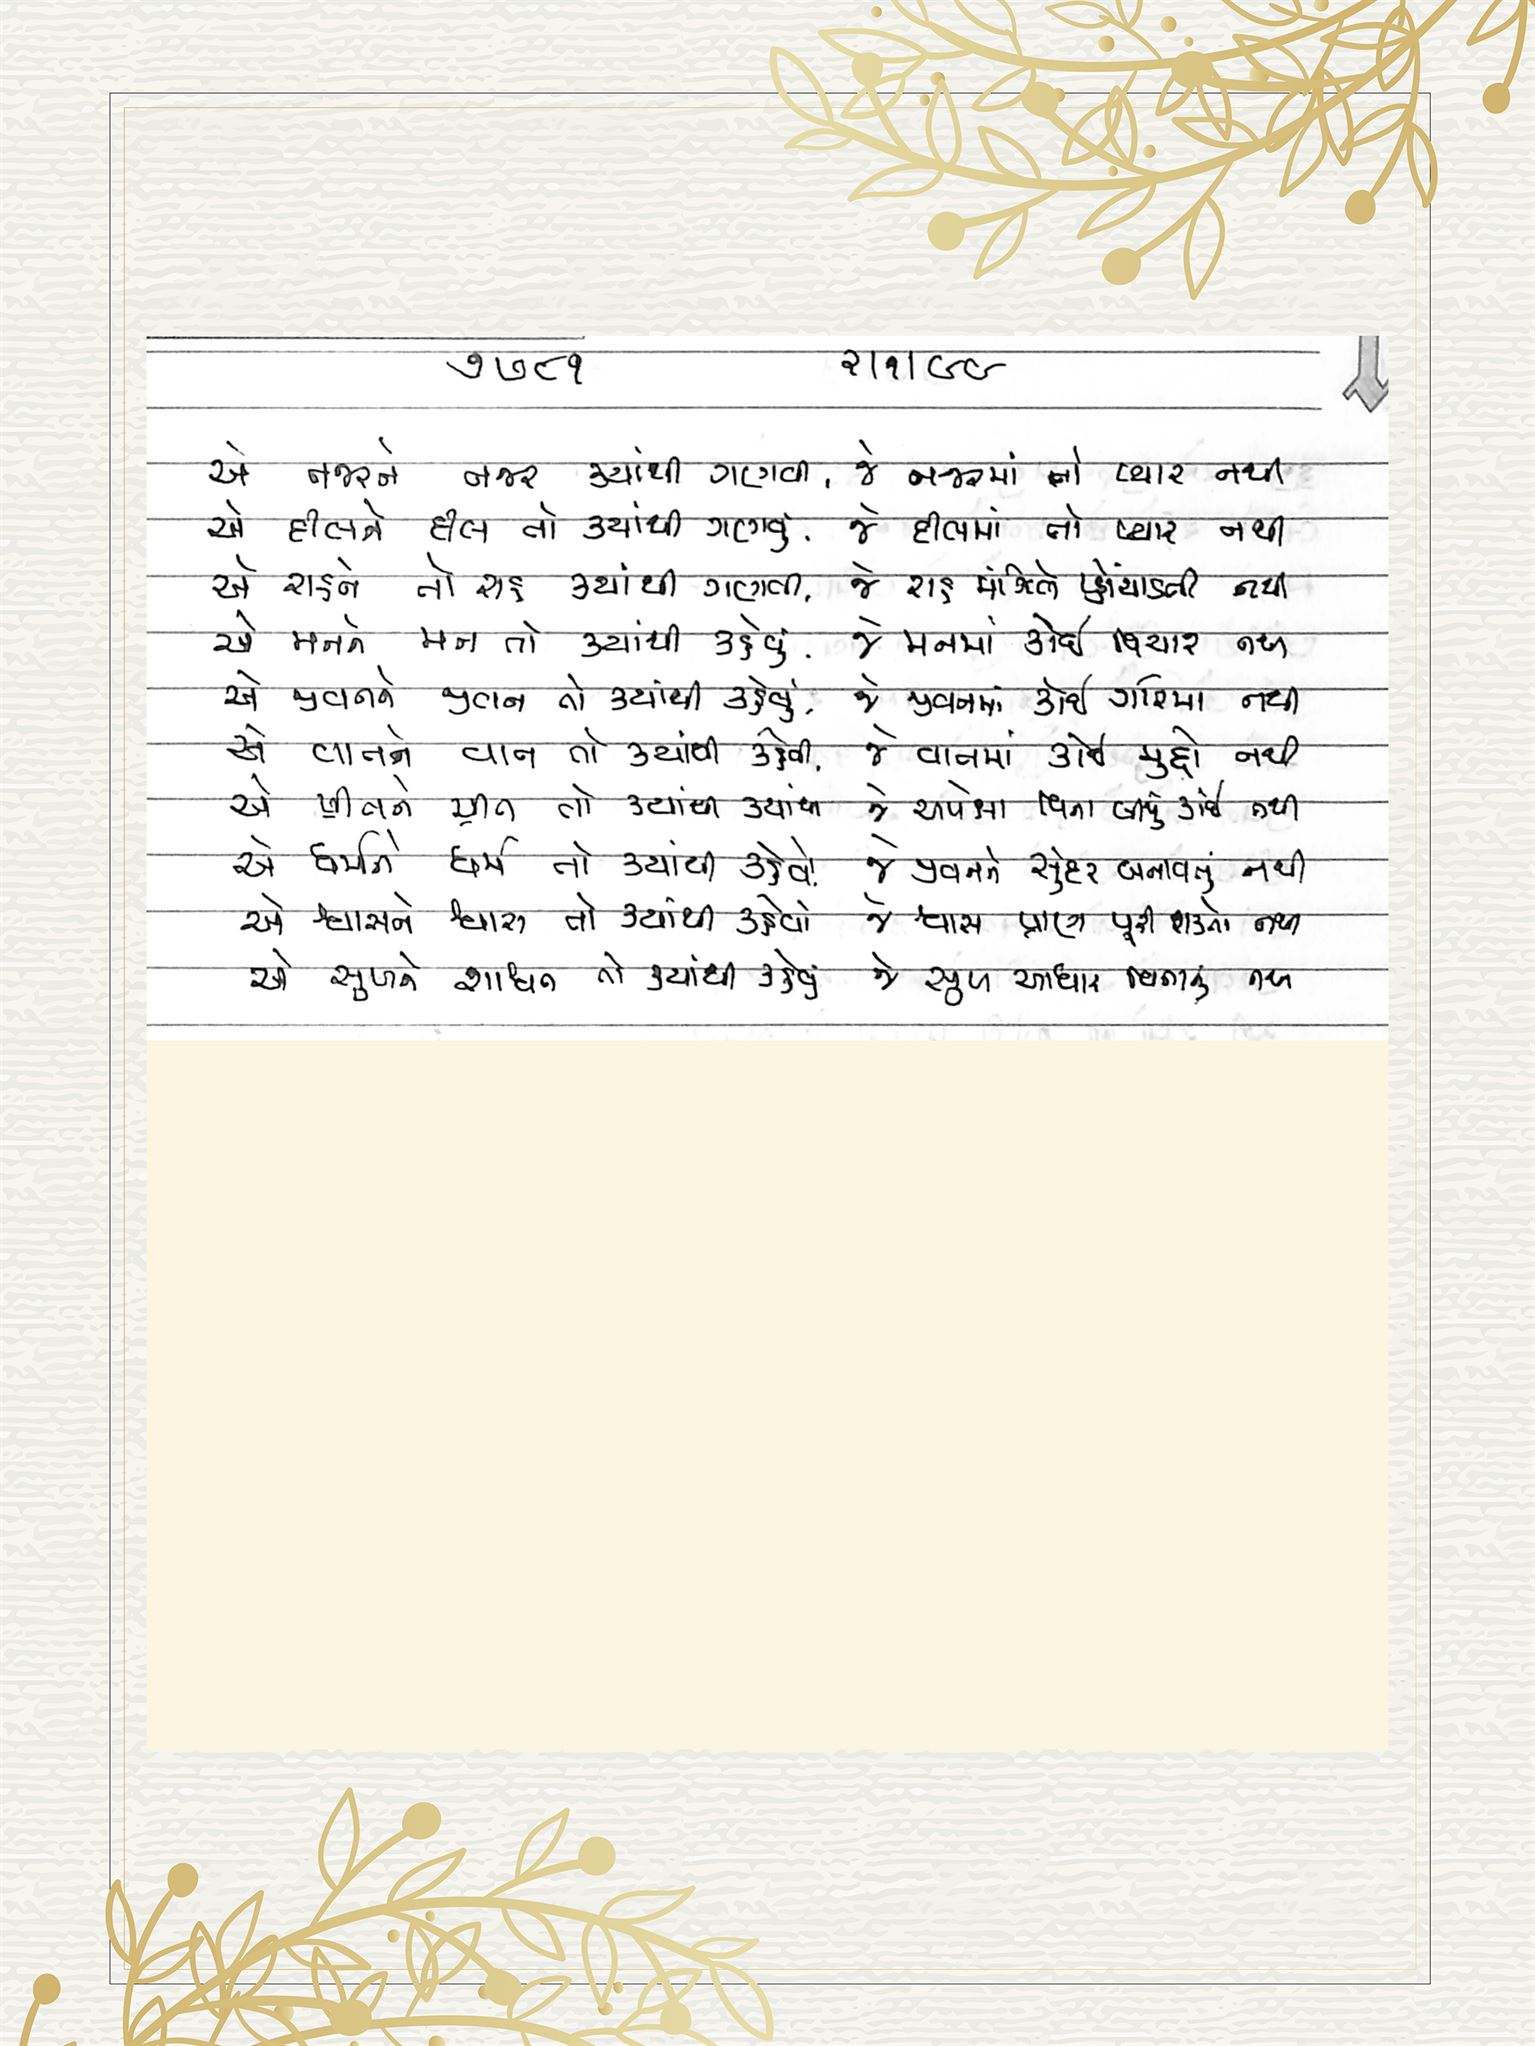 ૭૭૮૧ ૨।૧।૯૯
એ નજરને નજર ક્યાંથી ગણવી, જે નજરમાં તો પ્યાર નથી
એ દીલને દીલ તો ક્યાંથી ગણવું. જે દીલમાં તો પ્યાર નથી
એ રાહને તો રાહ ક્યાંથી ગણવી, જે રાહ મંઝિલે પ્હોંચાડતી નથી
એ મનને મન તો ક્યાંથી કહેવું. જે મનમાં કોઈ વિચાર નથી
એ જીવનને જીવન તો ક્યાંથી કહેવું, જે જીવનમાં કોઈ ગરિમા નથી
એ વાતને વાત તો ક્યાંથી કહેવી, જે વાતમાં કોઈ મુદ્દો નથી
એ પ્રીતને પ્રીત તો ક્યાંથી ક્યાંથી જે અપેક્ષા વિના બીજું કોઈ નથી
એ ધર્મને ધર્મ તો ક્યાંથી કહેવો, જે જીવનને સુંદર બનાવતું નથી
એ શ્વાસને શ્વાસ તો ક્યાંથી કહેવો જે શ્વાસ પ્રાણ પૂરી શકતો નથી
એ સુખને સાધન તો ક્યાંથી કહેવું જે સુખ આધાર વિનાનું નથી